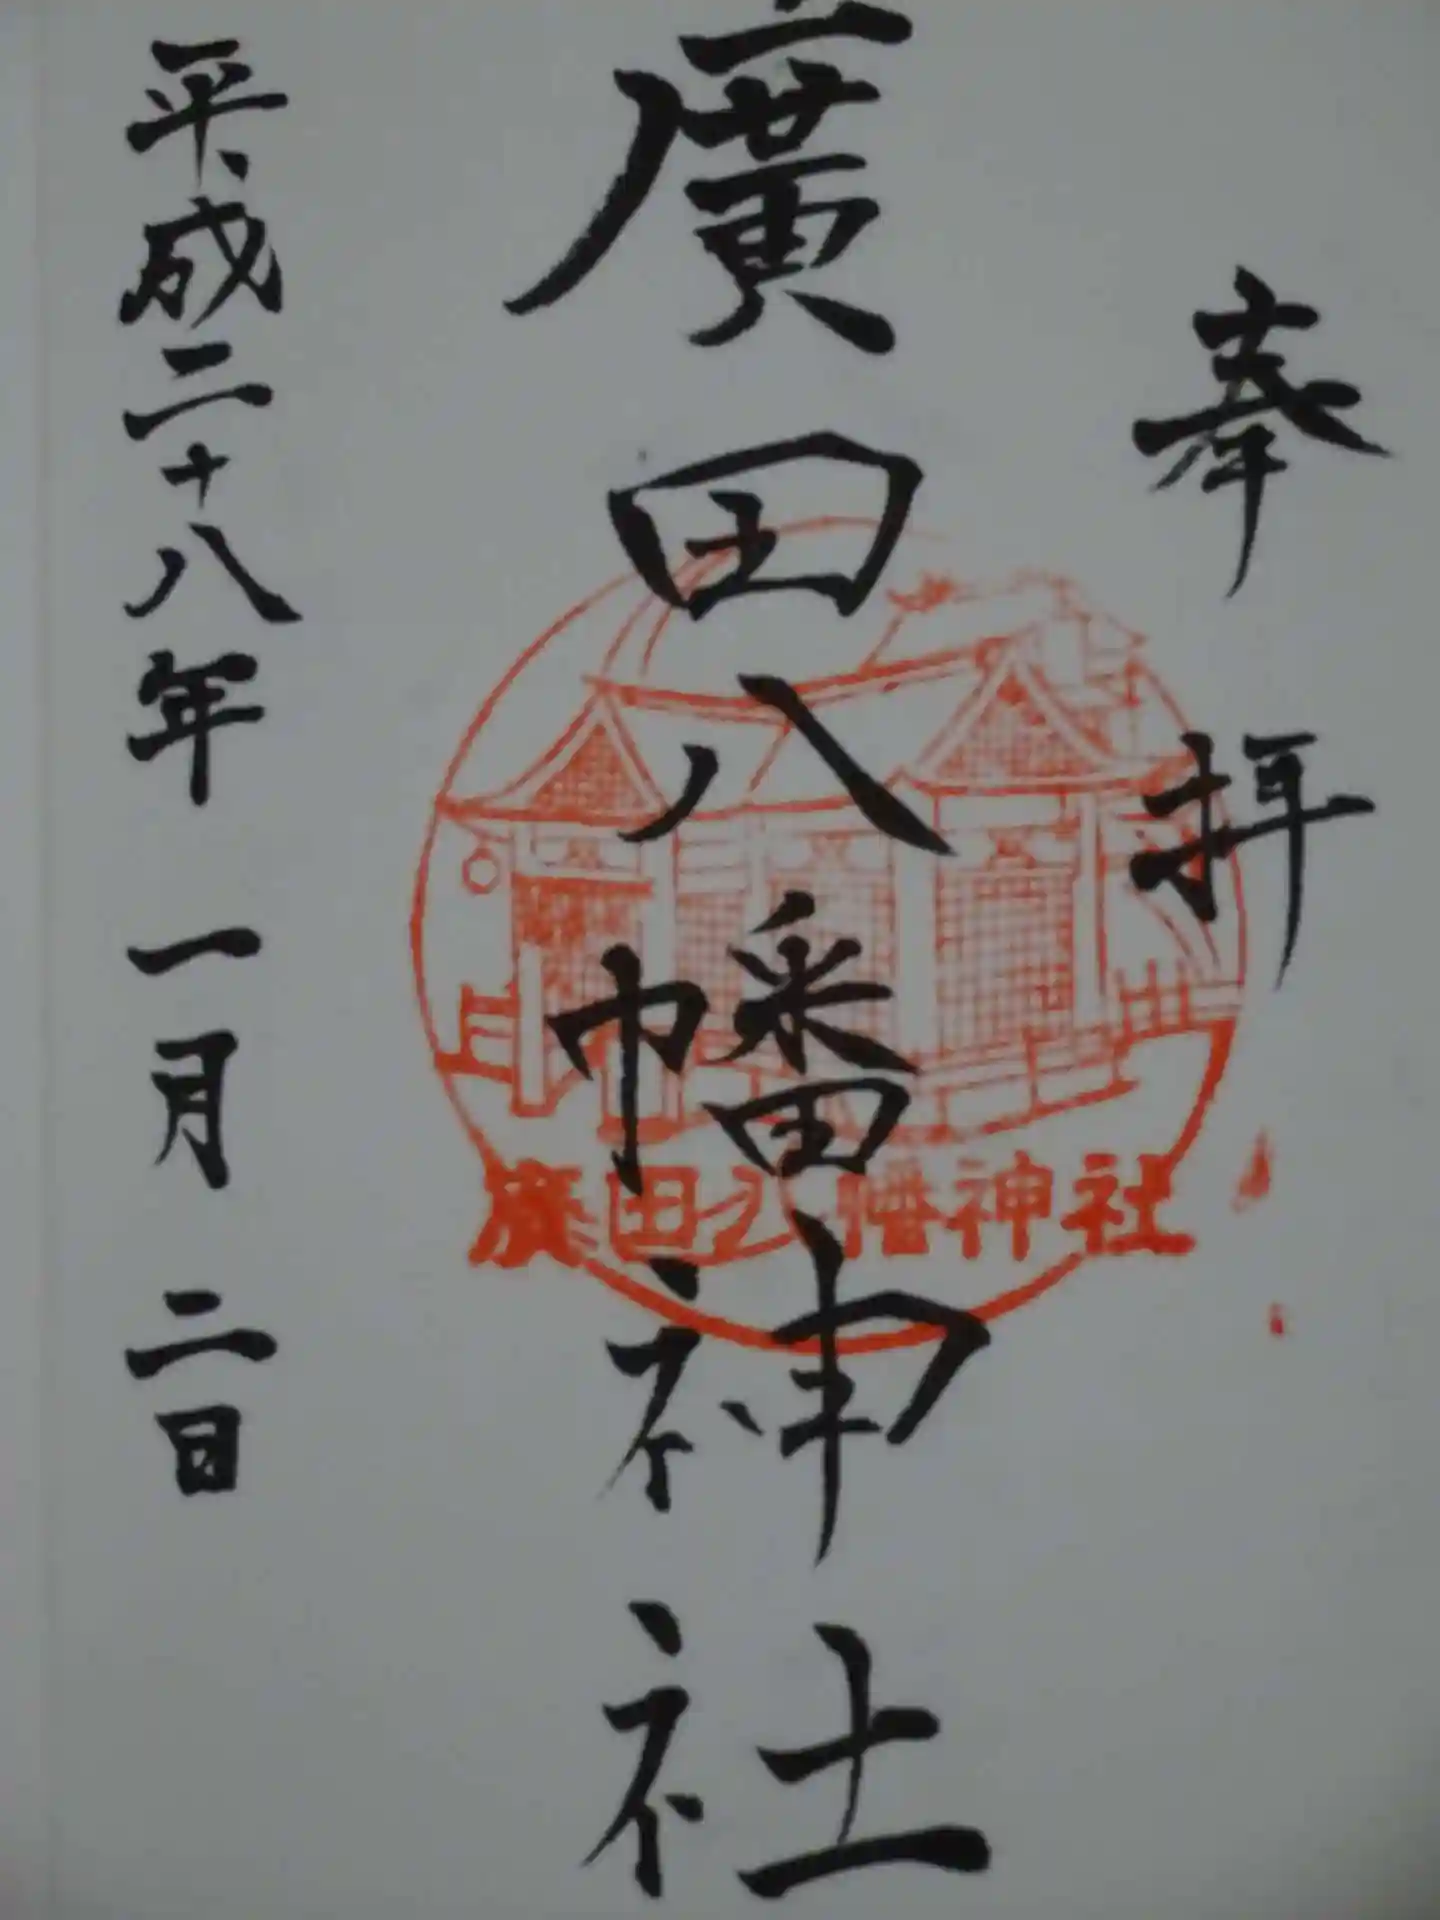 奉拝
廣田八幡神社
廣田八幡神社
平成二十八年 一月 二日